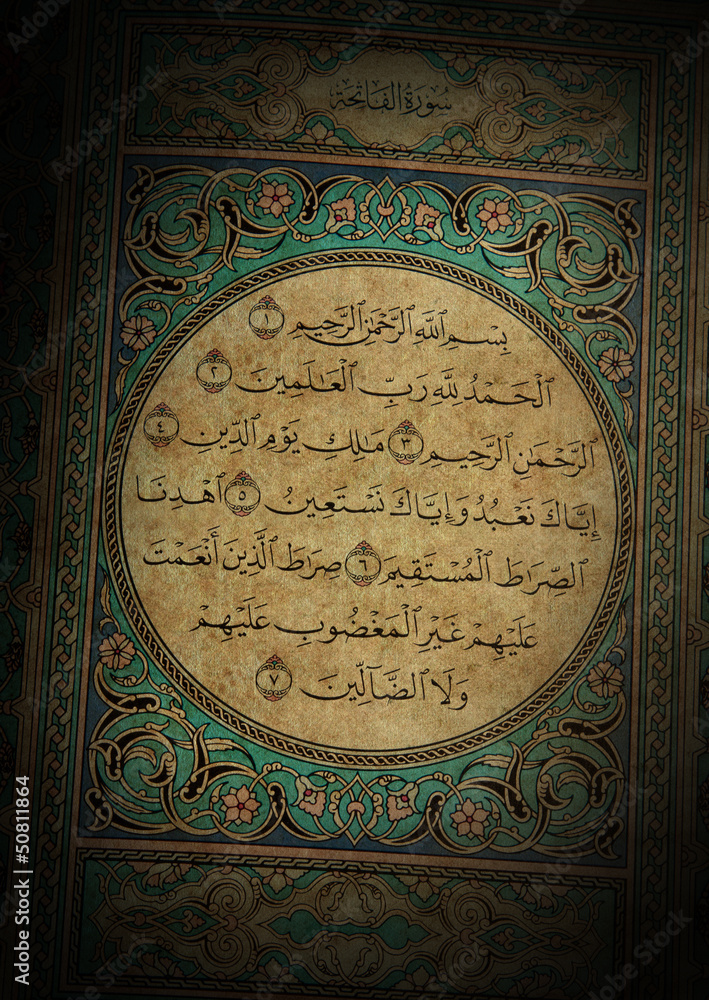 سُورَةُ الفَاتِحَةِ
بِسْمِ ٱللَّهِ ٱلرَّحْمَٰنِ ٱلرَّحِيمِ ١
ٱلْحَمْدُ لِلَّهِ رَبِّ ٱلْعَـٰلَمِينَ ٢
ٱلرَّحْمَٰنِ ٱلرَّحِيمِ ٣ مَـٰلِكِ يَوْمِ ٱلدِّينِ ٤
إِيَّاكَ نَعْبُدُ وَإِيَّاكَ نَسْتَعِينُ ٥ ٱهْدِنَا
ٱلصِّرَٰطَ ٱلْمُسْتَقِيمَ ٦ صِرَٰطَ ٱلَّذِينَ أَنْعَمْتَ
عَلَيْهِمْ غَيْرِ ٱلْمَغْضُوبِ عَلَيْهِمْ
وَلَا ٱلضَّآلِّينَ ٧
Adobe Stock | #50811864